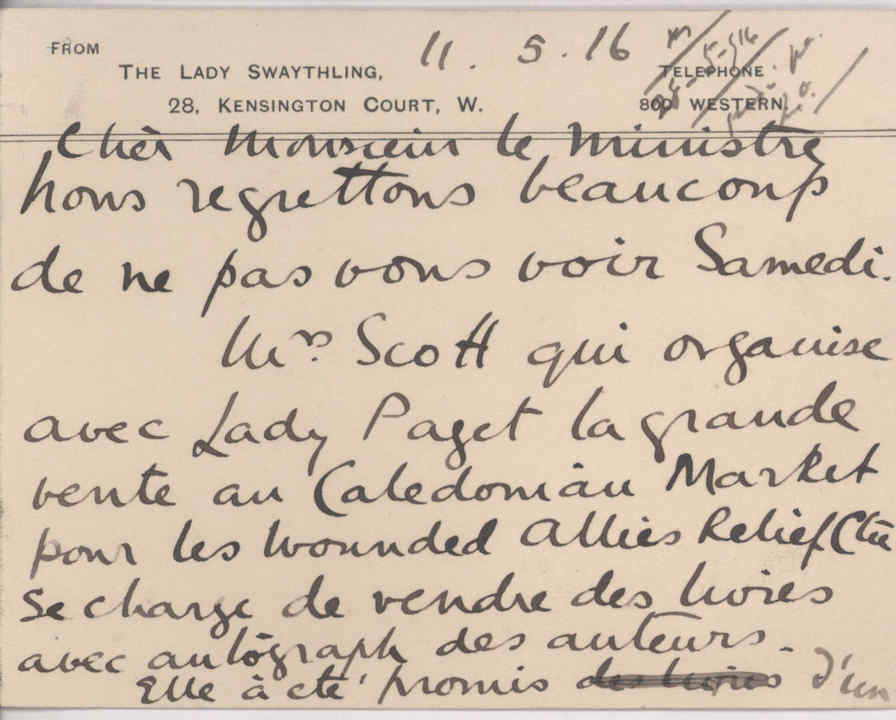 FROM
THE LADY SWAYTHLING,
28, KENSINGTON COURT, W.
11. 5. 16
TELEPHONE
800 WESTERN.
Cher Monsieur le Ministre
nous regrettons beaucoup
de ne pas vous voir Samedi.
Mrs. Scott qui organise
avec Lady Paget la grande
vente au Caledonian Market
pour les Wounded Allies Relief Ctee
se charge de vendre des livres
avec autograph des auteurs.
Elle à été promis des livres d'un